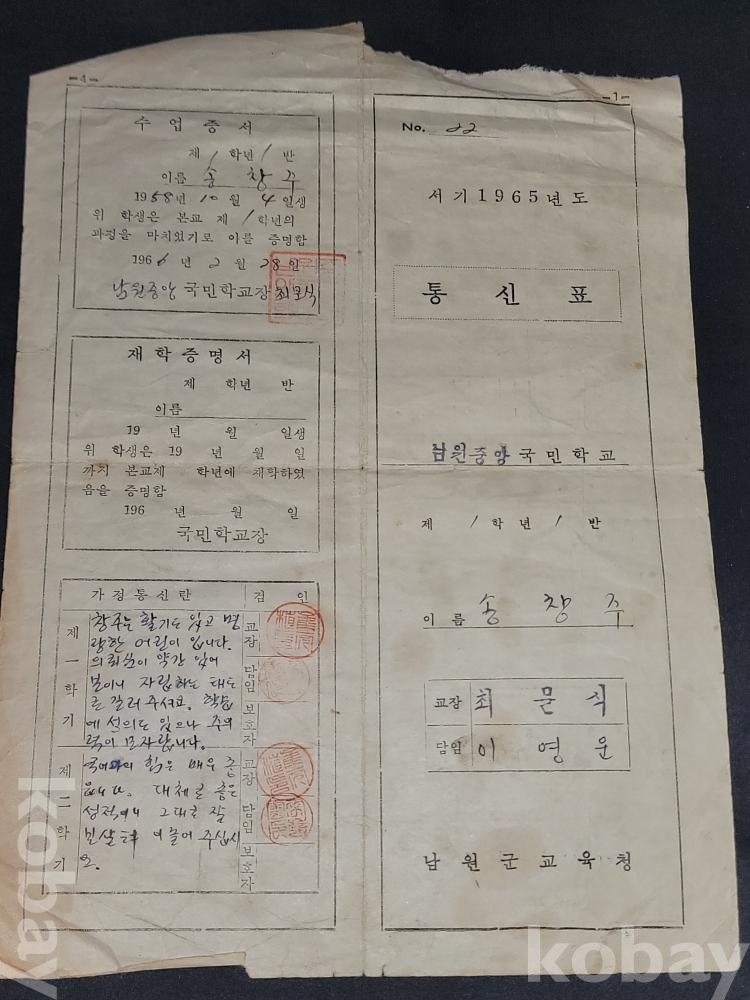 -4-
수업증서
제 1 학년 1 반
이름 송 창 주
1958년 10월 4일생
위 학생은 본교 제 1 학년의
과정을 마치었기로 이를 증명함
1966년 2월 28일
남원중앙 국민학교장 최문식
재학증명서
제 학년 반
이름
19 년 월 일생
위 학생은 19 년 월 일
까지 본교제 학년에 재학하였
음을 증명함
196 년 월 일
국민학교장
가정통신란 검 인
제 一 학 기
창주는 활기도 있고 명
랑한 어린이 입니다.
의뢰심이 약간 있어
보이니 자립하는 태도
를 길러 주셔요. 학습
에 성의도 있으나 주의
력이 모자랍니다.
교장
담임
보호자
제 二 학 기
힘은 매우 좋
읍니다. 대체로 좋은
성적이니 그대로 잘
이끌어 주십시
오.
교장
담임
보호자
-1-
No. 22
서기 1965년도
통 신 표
남원중앙 국민학교
제 1 학년 1 반
이름 송 창 주
교장 최 문 식
담임 이 영 운
남원군교육청
kobay
kobay